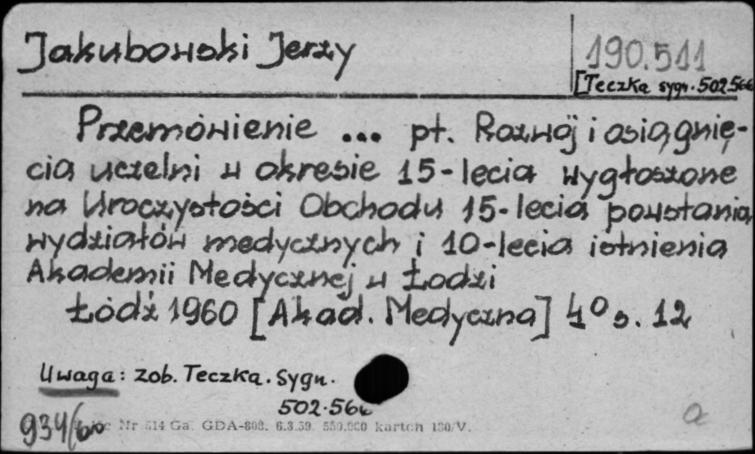 Jakubowski Jerzy
190.511
[Teczka sygn. 502.566
Przemówienie ... pt. Rozwój i osiągnię-
cia uczelni w okresie 15-lecia wygłoszone
na Uroczystości Obchodu 15-lecia powstania
wydziałów medycznych i 10-lecia istnienia
Akademii Medycznej w Łodzi
Łódź 1960 [Akad. Medyczna] 4° s. 12
Uwaga: zob. Teczka. Sygn.
502.566
934/60 Nr 514 Ga. GDA-808. 6.3.59. 550.000 kartch 180/V.
a